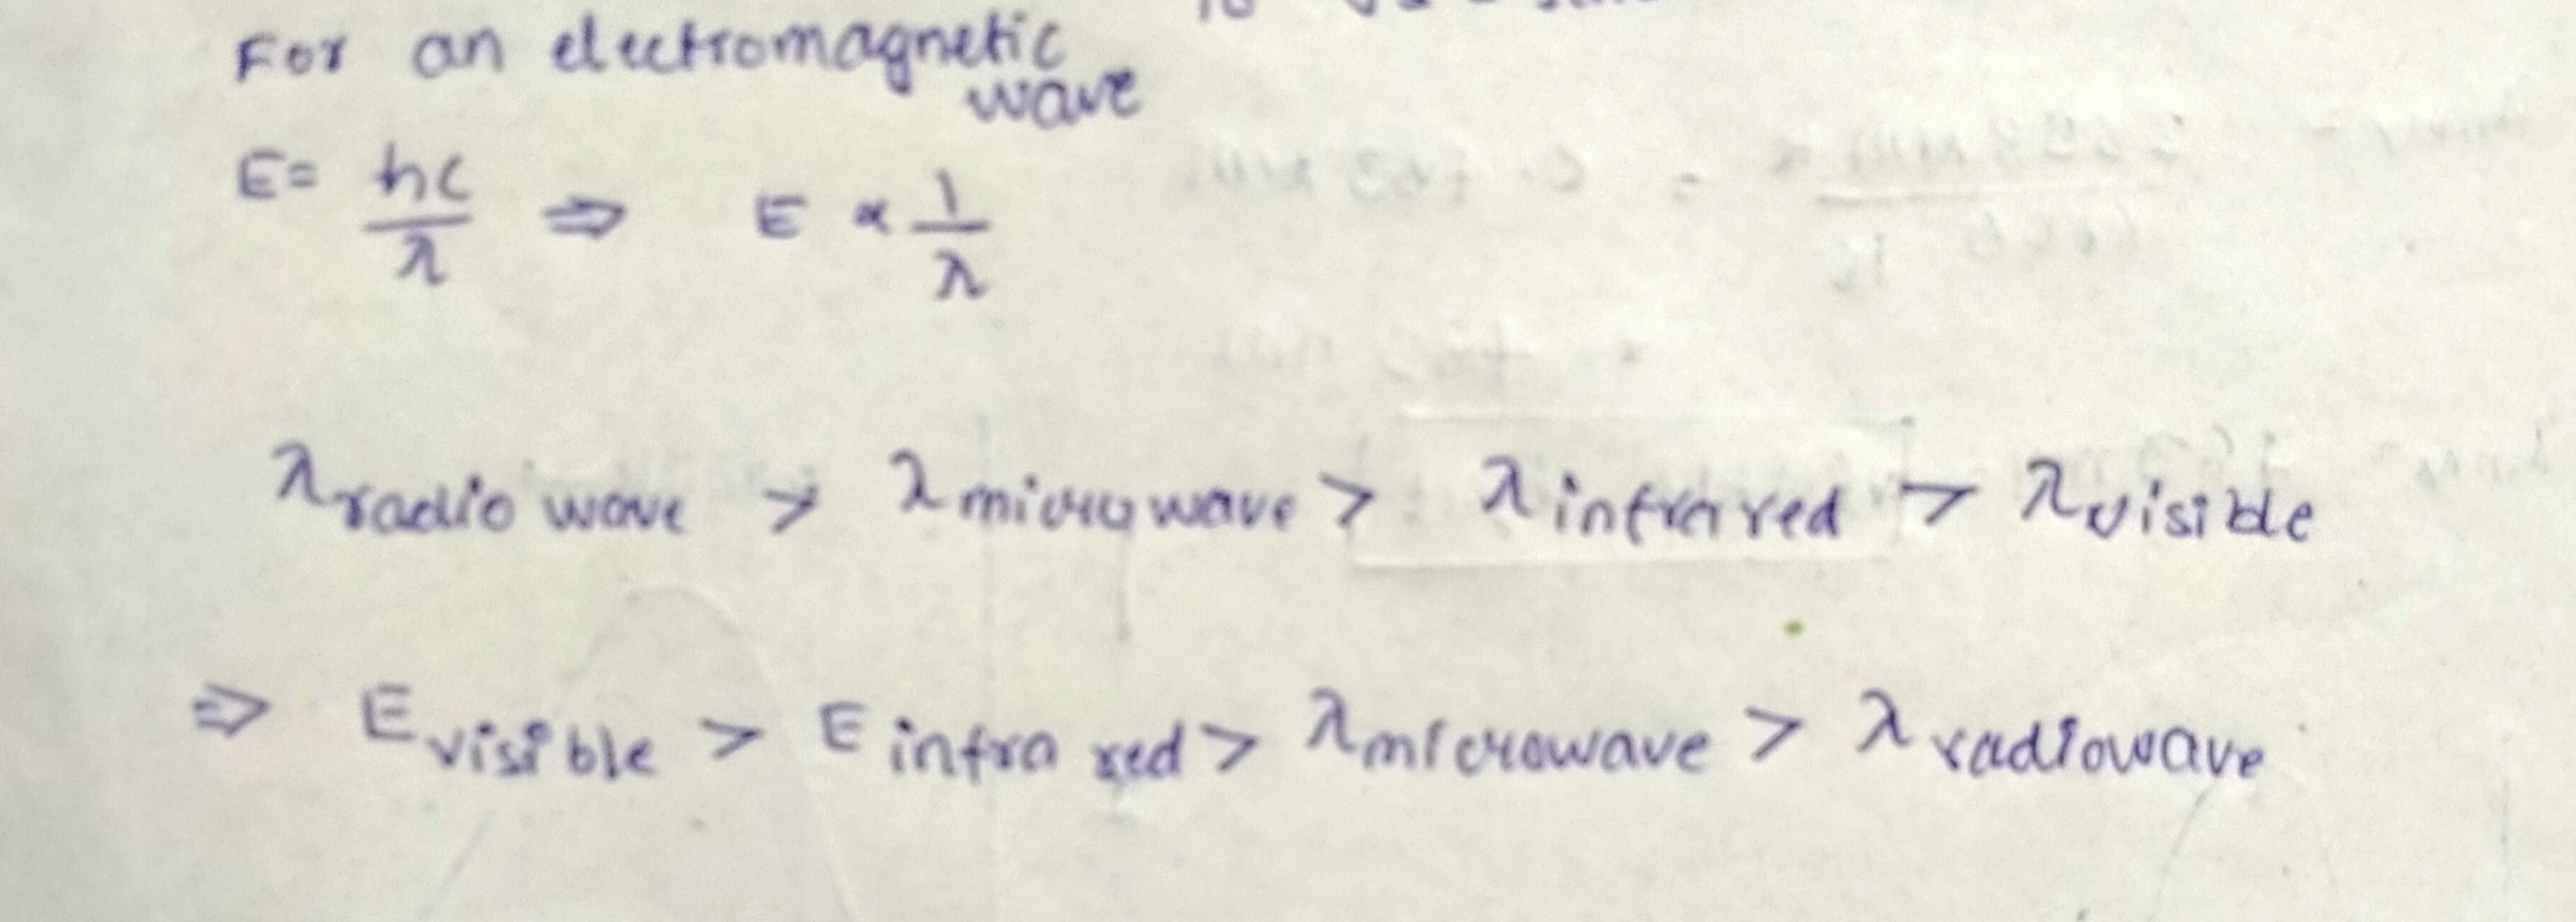 For an electromagnetic
wave
E = hc/λ ⇒ E ∝ 1/λ
λ radio wave > λ microwave > λ infrared > λ visible
⇒ E visible > E infra red > λ microwave > λ radiowave